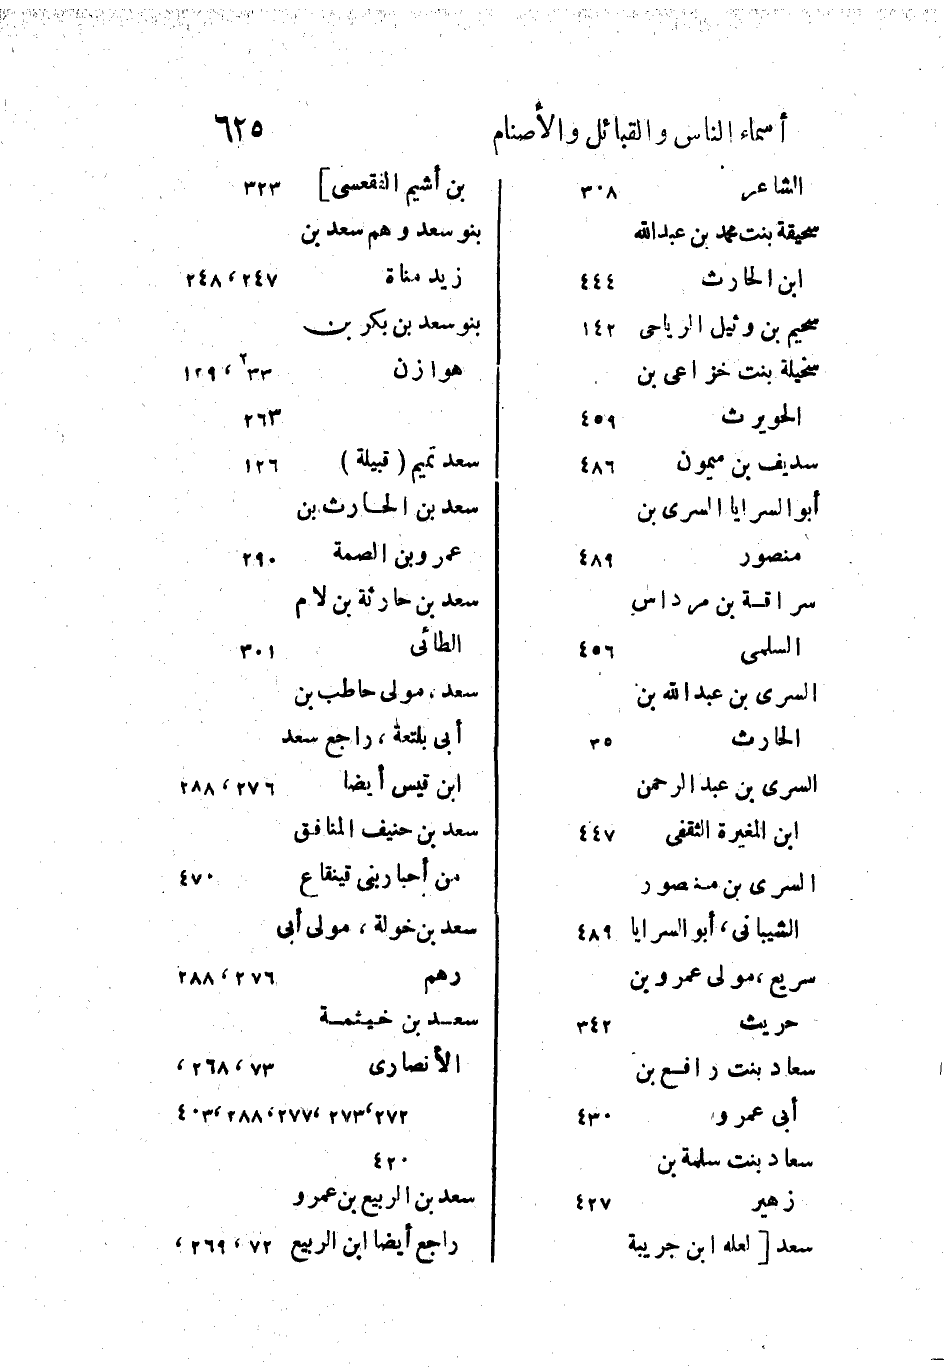 أسماء الناس والقبائل والأصنام ٦٢٥
الشاعر ٣٠٨
سحيقة بنت محمد بن عبدالله
ابن الحارث ٤٤٤
سحيم بن وثيل الرياحى ١٤٢
سخيلة بنت خزاعى بن
الحويرث ٤٥٩
سديف بن ميمون ٤٨٦
أبو السرايا السرى بن
منصور ٤٨٩
سراقة بن مرداس
السلمى ٤٥٦
السرى بن عبدالله بن
الحارث ٣٥
السرى بن عبد الرحمن
ابن المغيرة الثقفى ٤٤٧
السرى بن منصور
الشيبانى، أبو السرايا ٤٨٩
سريع، مولى عمرو بن
حريث ٣٤٢
سعاد بنت رافع بن
أبى عمرو ٤٣٠
سعاد بنت سلمة بن
زهير ٤٢٧
سعد [ لعله ابن جريبة
بن أشيم الفقعسى] ٣٢٣
بنو سعد وهم سعد بن
زيد مناة ٢٤٧، ٢٤٨
بنو سعد بن بكر بن
هوازن ٢٣٣، ١٢٩
٢٦٣
سعد تميم ( قبيلة ) ١٢٦
سعد بن الحارث بن
عمرو بن الصمة ٢٩٠
سعد بن حارثة بن لام
الطائى ٣٠١
سعد، مولى حاطب بن
أبى بلتعة، راجع سعد
ابن قيس أيضا ٢٧٦، ٢٨٨
سعد بن حنيف المنافق
من أحبار بنى قينقاع ٤٧٠
سعد بن خولة، مولى أبى
رهم ٢٧٦، ٢٨٨
سعد بن خيثمة
الأنصارى ٧٣، ٢٦٨،
٢٧٢، ٢٧٣، ٢٧٧، ٢٨٨، ٤٠٣
٤٢٠
سعد بن الربيع بن عمرو
راجع أيضا ابن الربيع ٧٢، ٢٦٩،